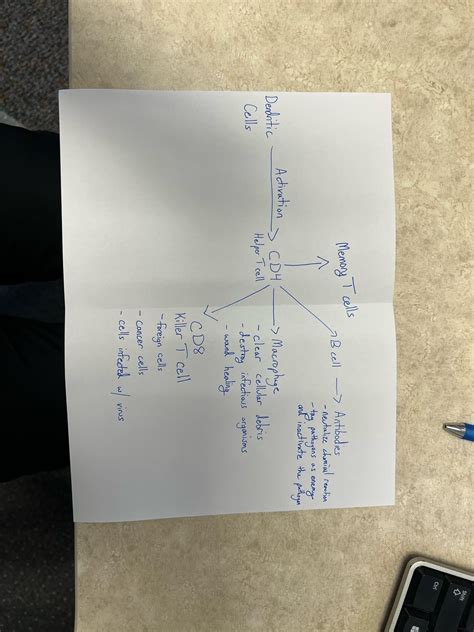 Memory T cells
Dendritic
Cells
Activation
CD4
Helper T cell
B cell
Antibodies
- neutralize chemical reaction
- tag pathogens as enemy
and inactivate the pathogen
Macrophage
- clear cellular debris
- destroy infectious organisms
- wound healing
CD8
Killer T cell
- foreign cells
- cancer cells
- cells infected w/ virus
Ctrl